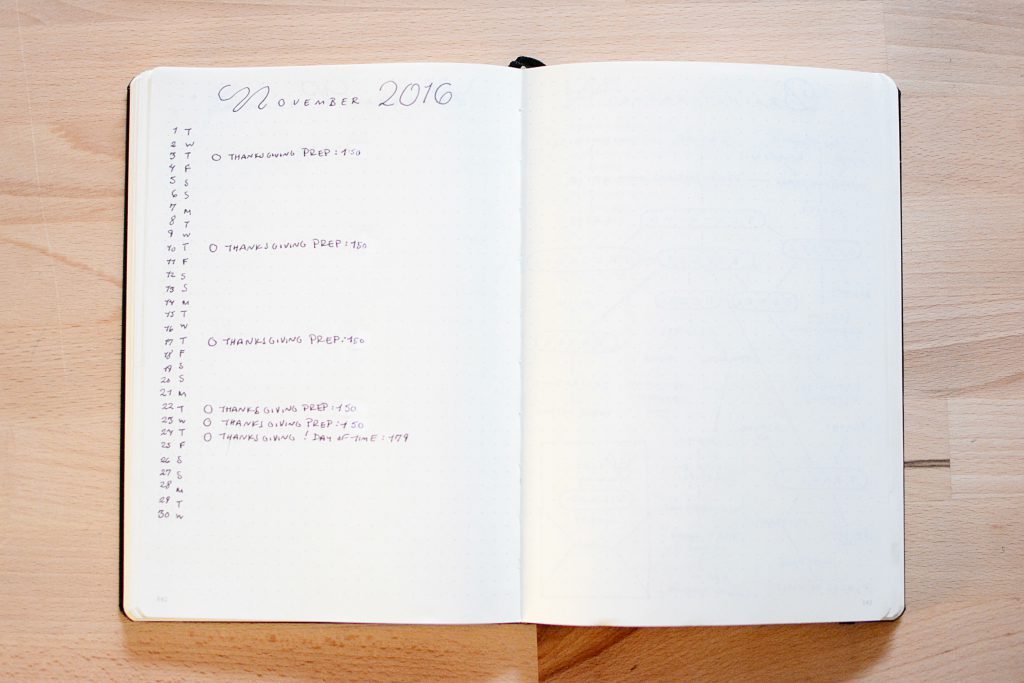 November 2016
1 T
2 W
3 T O THANKSGIVING PREP: 150
4 F
5 S
6 S
7 M
8 T
9 W
10 T O THANKSGIVING PREP: 150
11 F
12 S
13 S
14 M
15 T
16 W
17 T O THANKSGIVING PREP: 150
18 F
19 S
20 S
21 M
22 T O THANKSGIVING PREP: 150
23 W O THANKSGIVING PREP: 150
24 T O THANKSGIVING ! DAY OF TIME: 179
25 F
26 S
27 S
28 M
29 T
30 W